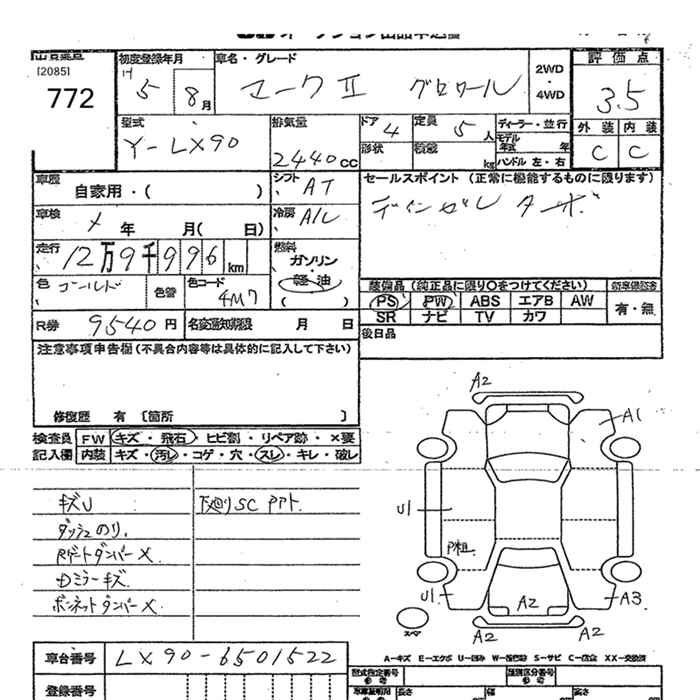 [2085]
772
初度登録年月
H5 8月
車名・グレード
マークⅡ グロワール
2WD・4WD
評価点
3.5
型式
Y-LX90
排気量
2440cc
ドア 4
形状
定員 5人
積載 kg
ディーラー・並行
モデル年式 年
ハンドル 左・右
外装 内装
C C
車歴 自家用・( )
シフト AT
セールスポイント (正常に機能するものに限ります)
ディーゼル ターボ
車検 メ 年 月( 日)
冷房 A/C
走行 12万9千996km
燃料 ガソリン・軽油 ( )
色 ゴールド
色替
色コード 4M7
装備品(純正品に限り○をつけてください)
PS PW ABS エアB AW
SR ナビ TV カワ
有・無
R券 9540円
名変通知期限 月 日
後日品
注意事項申告欄(不具合内容等は具体的に記入して下さい)
修復歴 有〔箇所 〕
検査員記入欄
FW キズ・飛石・ヒビ割・リペア跡・×要
内装 キズ・汚レ・コゲ・穴・スレ・キレ・破レ
キズU 下廻りSC
ダッシュのり.
Rゲートダンパー×
Dミラーキズ
ボンネットダンパー×
A2
A1
U1
P粗
U1
A2
A3
A2 A2
スペア
A-キズ E-エクボ U-凹み W-補修跡 S-サビ C-腐食 XX-交換済
車台番号 LX90-6501522
型式指定番号
類別区分番号
参考
登録番号
長さ 幅 高さ